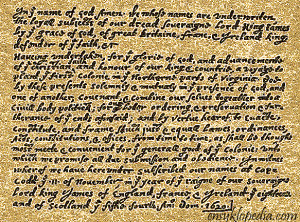 In yᵉ name of god Amen. We whose names are underwriten,
the loyall subjects of our dread soveraigne Lord King James
by yᵉ grace of god, of great britaine, franc, & Ireland king,
defender of yᵉ faith, &c
Haveing undertaken, for yᵉ glorie of god, and advancemente
of yᵉ christian faith and honour of our king & countrie, a voyage to
plant yᵉ first colonie in yᵉ Northerne parts of Virginia. Doe
by these presents solemnly & mutualy in yᵉ presence of god, and
one of another, covenant, & combine our selves togeather into a
civill body politick; for
and by vertue hearof to enacte,
constitute, and frame such just & equall lawes, ordinances,
Acts, constitutions, & offices, from time to time, as shall be thought
most meete & convenient for yᵉ generall good of yᵉ colonie: unto
which we promise all due submission and obedience. In witnes
wherof we have hereunder subscribed our names at cape
Codd yᵉ .11. of November in yᵉ year of yᵉ raigne of our soveraigne
Lord king James of England, franc, & Ireland yᵉ eighteenth
and of Scotland yᵉ fiftie fourth. Ano Dom. 1620.